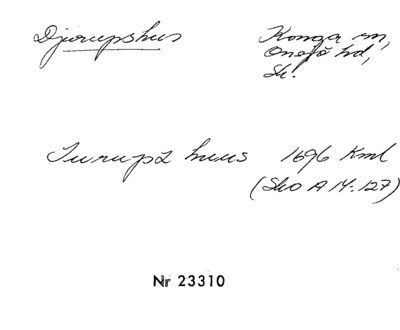 Djurupshus
Konga sn,
Onsjö hd,
Sk.
Jurupz huus 1696 Kml
(Sko A 14:127)
Nr 23310